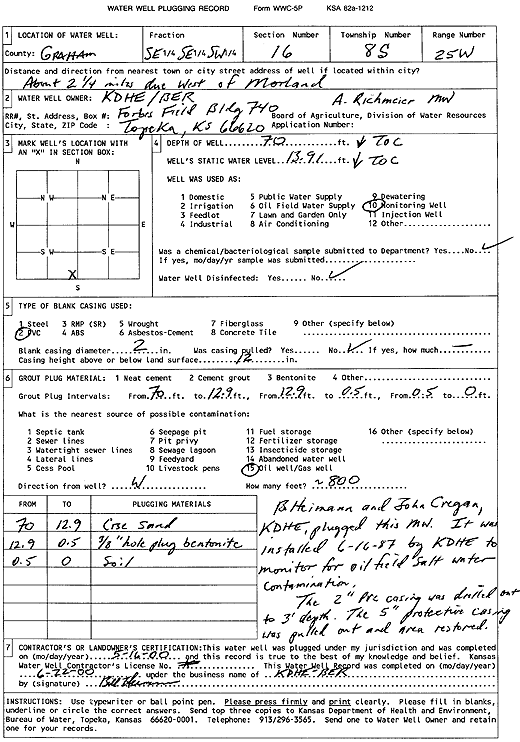 WATER WELL PLUGGING RECORD Form WWC-5P KSA 82a-1212
1 LOCATION OF WATER WELL: Fraction Section Number Township Number Range Number
County: GRAHAM SE 1/4 SE 1/4 SW 1/4 16 8S 25W
Distance and direction from nearest town or city street address of well if located within city?
About 2 1/4 miles due West of Morland
2 WATER WELL OWNER: KDHE/BER A. Richmeier MW
RR#, St. Address, Box #: Forbes Field Bldg 740 Board of Agriculture, Division of Water Resources
City, State, ZIP Code : Topeka, KS 66620 Application Number:
3 MARK WELL'S LOCATION WITH AN "X" IN SECTION BOX:
N
N W N E
W E
S W S E
X
S
4 DEPTH OF WELL.....70.....ft. ↓ TOC
WELL'S STATIC WATER LEVEL..13.91...ft. ↓ TOC
WELL WAS USED AS:
1 Domestic 5 Public Water Supply 9 Dewatering
2 Irrigation 6 Oil Field Water Supply 10 Monitoring Well
3 Feedlot 7 Lawn and Garden Only 11 Injection Well
4 Industrial 8 Air Conditioning 12 Other...........
Was a chemical/bacteriological sample submitted to Department? Yes....No.✓
If yes, mo/day/yr sample was submitted....................
Water Well Disinfected: Yes...... No..✓
5 TYPE OF BLANK CASING USED:
1 Steel 3 RMP (SR) 5 Wrought 7 Fiberglass 9 Other (specify below)
2 PVC 4 ABS 6 Asbestos-Cement 8 Concrete Tile
Blank casing diameter....2....in. Was casing pulled? Yes...... No.✓.. If yes, how much..—
Casing height above or below land surface......12......in.
6 GROUT PLUG MATERIAL: 1 Neat cement 2 Cement grout 3 Bentonite 4 Other.................
Grout Plug Intervals: From.70.ft. to 12.9.ft., From.12.9.ft. to 0.5.ft., From.0.5 to..0.ft.
What is the nearest source of possible contamination:
1 Septic tank 6 Seepage pit 11 Fuel storage 16 Other (specify below)
2 Sewer lines 7 Pit privy 12 Fertilizer storage
3 Watertight sewer lines 8 Sewage lagoon 13 Insecticide storage
4 Lateral lines 9 Feedyard 14 Abandoned water well
5 Cess Pool 10 Livestock pens 15 Oil well/Gas well
Direction from well?....W...... How many feet?..~800
FROM TO PLUGGING MATERIALS
70 12.9 Crse Sand
12.9 0.5 3/8" hole plug bentonite
0.5 0 Soil
B Heimann and John Cregan,
KDHE, plugged this MW. It was
installed 6-16-87 by KDHE to
monitor for oil field salt water
contamination.
The 2" PVC casing was drilled out
to 3' depth. The 5" protective casing
was pulled out and area restored.
7 CONTRACTOR'S OR LANDOWNER'S CERTIFICATION: This water well was plugged under my jurisdiction and was completed
on (mo/day/year)..5-16-00...and this record is true to the best of my knowledge and belief. Kansas
Water Well Contractor's License No. .This Water Well Record was completed on (mo/day/year)
6-22-00. under the business name of KDHE-BER
by (signature)
INSTRUCTIONS: Use typewriter or ball point pen. Please press firmly and print clearly. Please fill in blanks,
underline or circle the correct answers. Send top three copies to Kansas Department of Health and Environment,
Bureau of Water, Topeka, Kansas 66620-0001. Telephone: 913/296-3565. Send one to Water Well Owner and retain
one for your records.